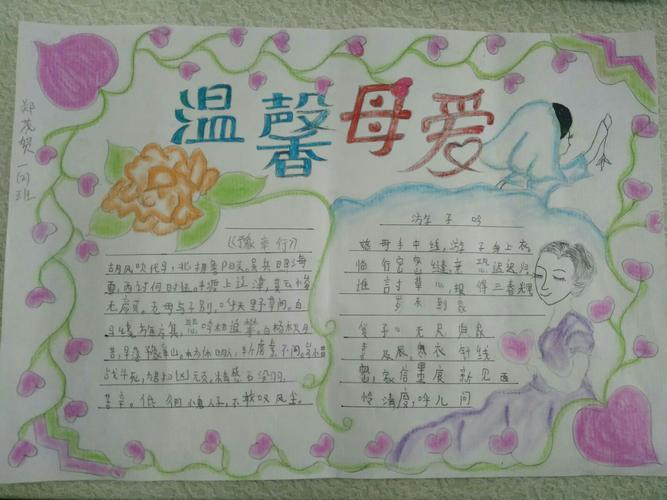 郑茂贺 一(2)班
温馨母爱
《豫章行》
胡风吹代马,北拥鲁阳关。吴兵照海
雪,西讨何时还。半渡上辽津,黄云惨
无颜。老母与子别,呼天野草间。白
马绕旌旗,悲鸣相追攀。白杨秋月
苦,早落豫章山。本为休明人,斩虏素不闲。岂惜
战斗死,为君扫凶顽。精感石没羽,
游子吟
慈母手中线,游子身上衣
临行密密缝,意恐迟迟归
谁言寸草心,报得三春晖
岁末到家
爱子心无尽 归家
喜及辰,寒衣针线
密,家信墨痕新 见面
怜清瘦,呼儿问